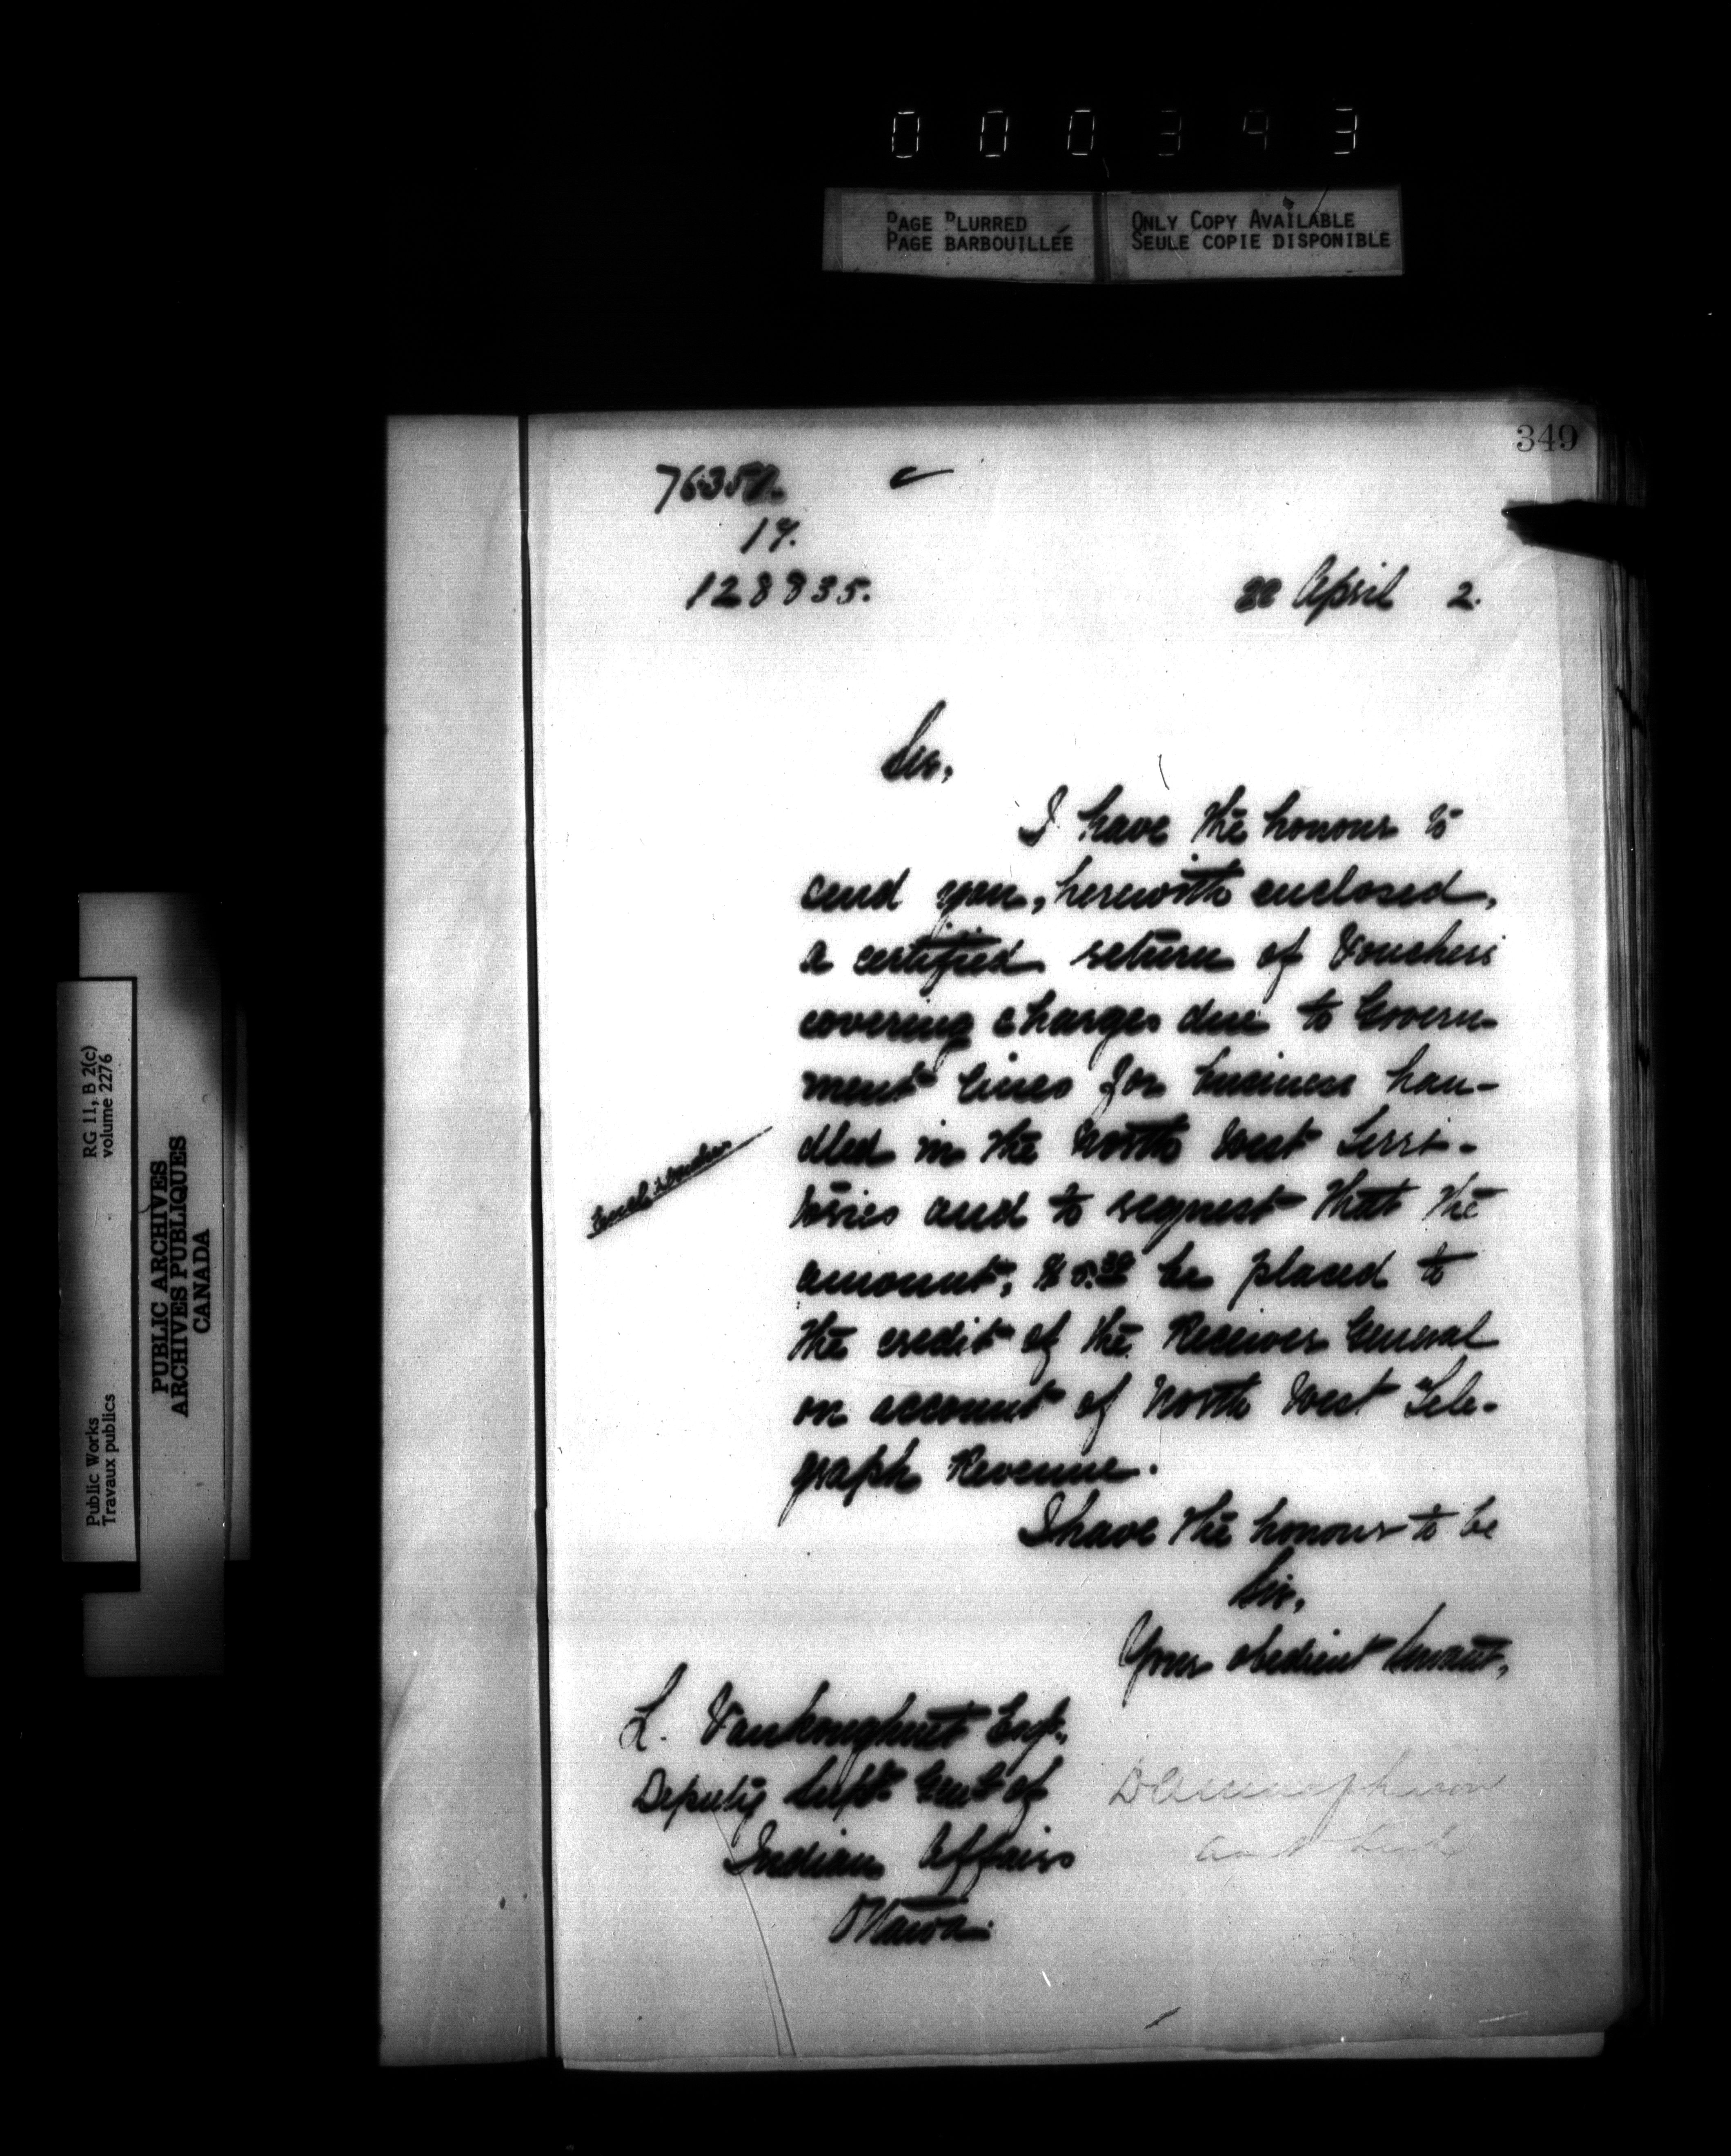 0 0 0 3 4 3
PAGE BLURRED
PAGE BARBOUILLÉE
ONLY COPY AVAILABLE
SEULE COPIE DISPONIBLE
349
19.
128835.
April 2.
Sir,
I have the honour to
send you, herewith enclosed,
a certified return of Vouchers
covering charges due to Govern-
ment lines for business han-
dled in the North West Terri-
tories and to request that the
amount, be placed to
the credit of the Receiver General
on account of North West Tele-
graph Revenue.
I have the honour to be
Sir,
Your obedient Servant,
L. Vankoughnet Esq.,
Deputy Supt. Genl. of
Indian Affairs
Ottawa.
RG 11, B 2(c)
volume 2276
Public Works
Travaux publics
PUBLIC ARCHIVES
ARCHIVES PUBLIQUES
CANADA